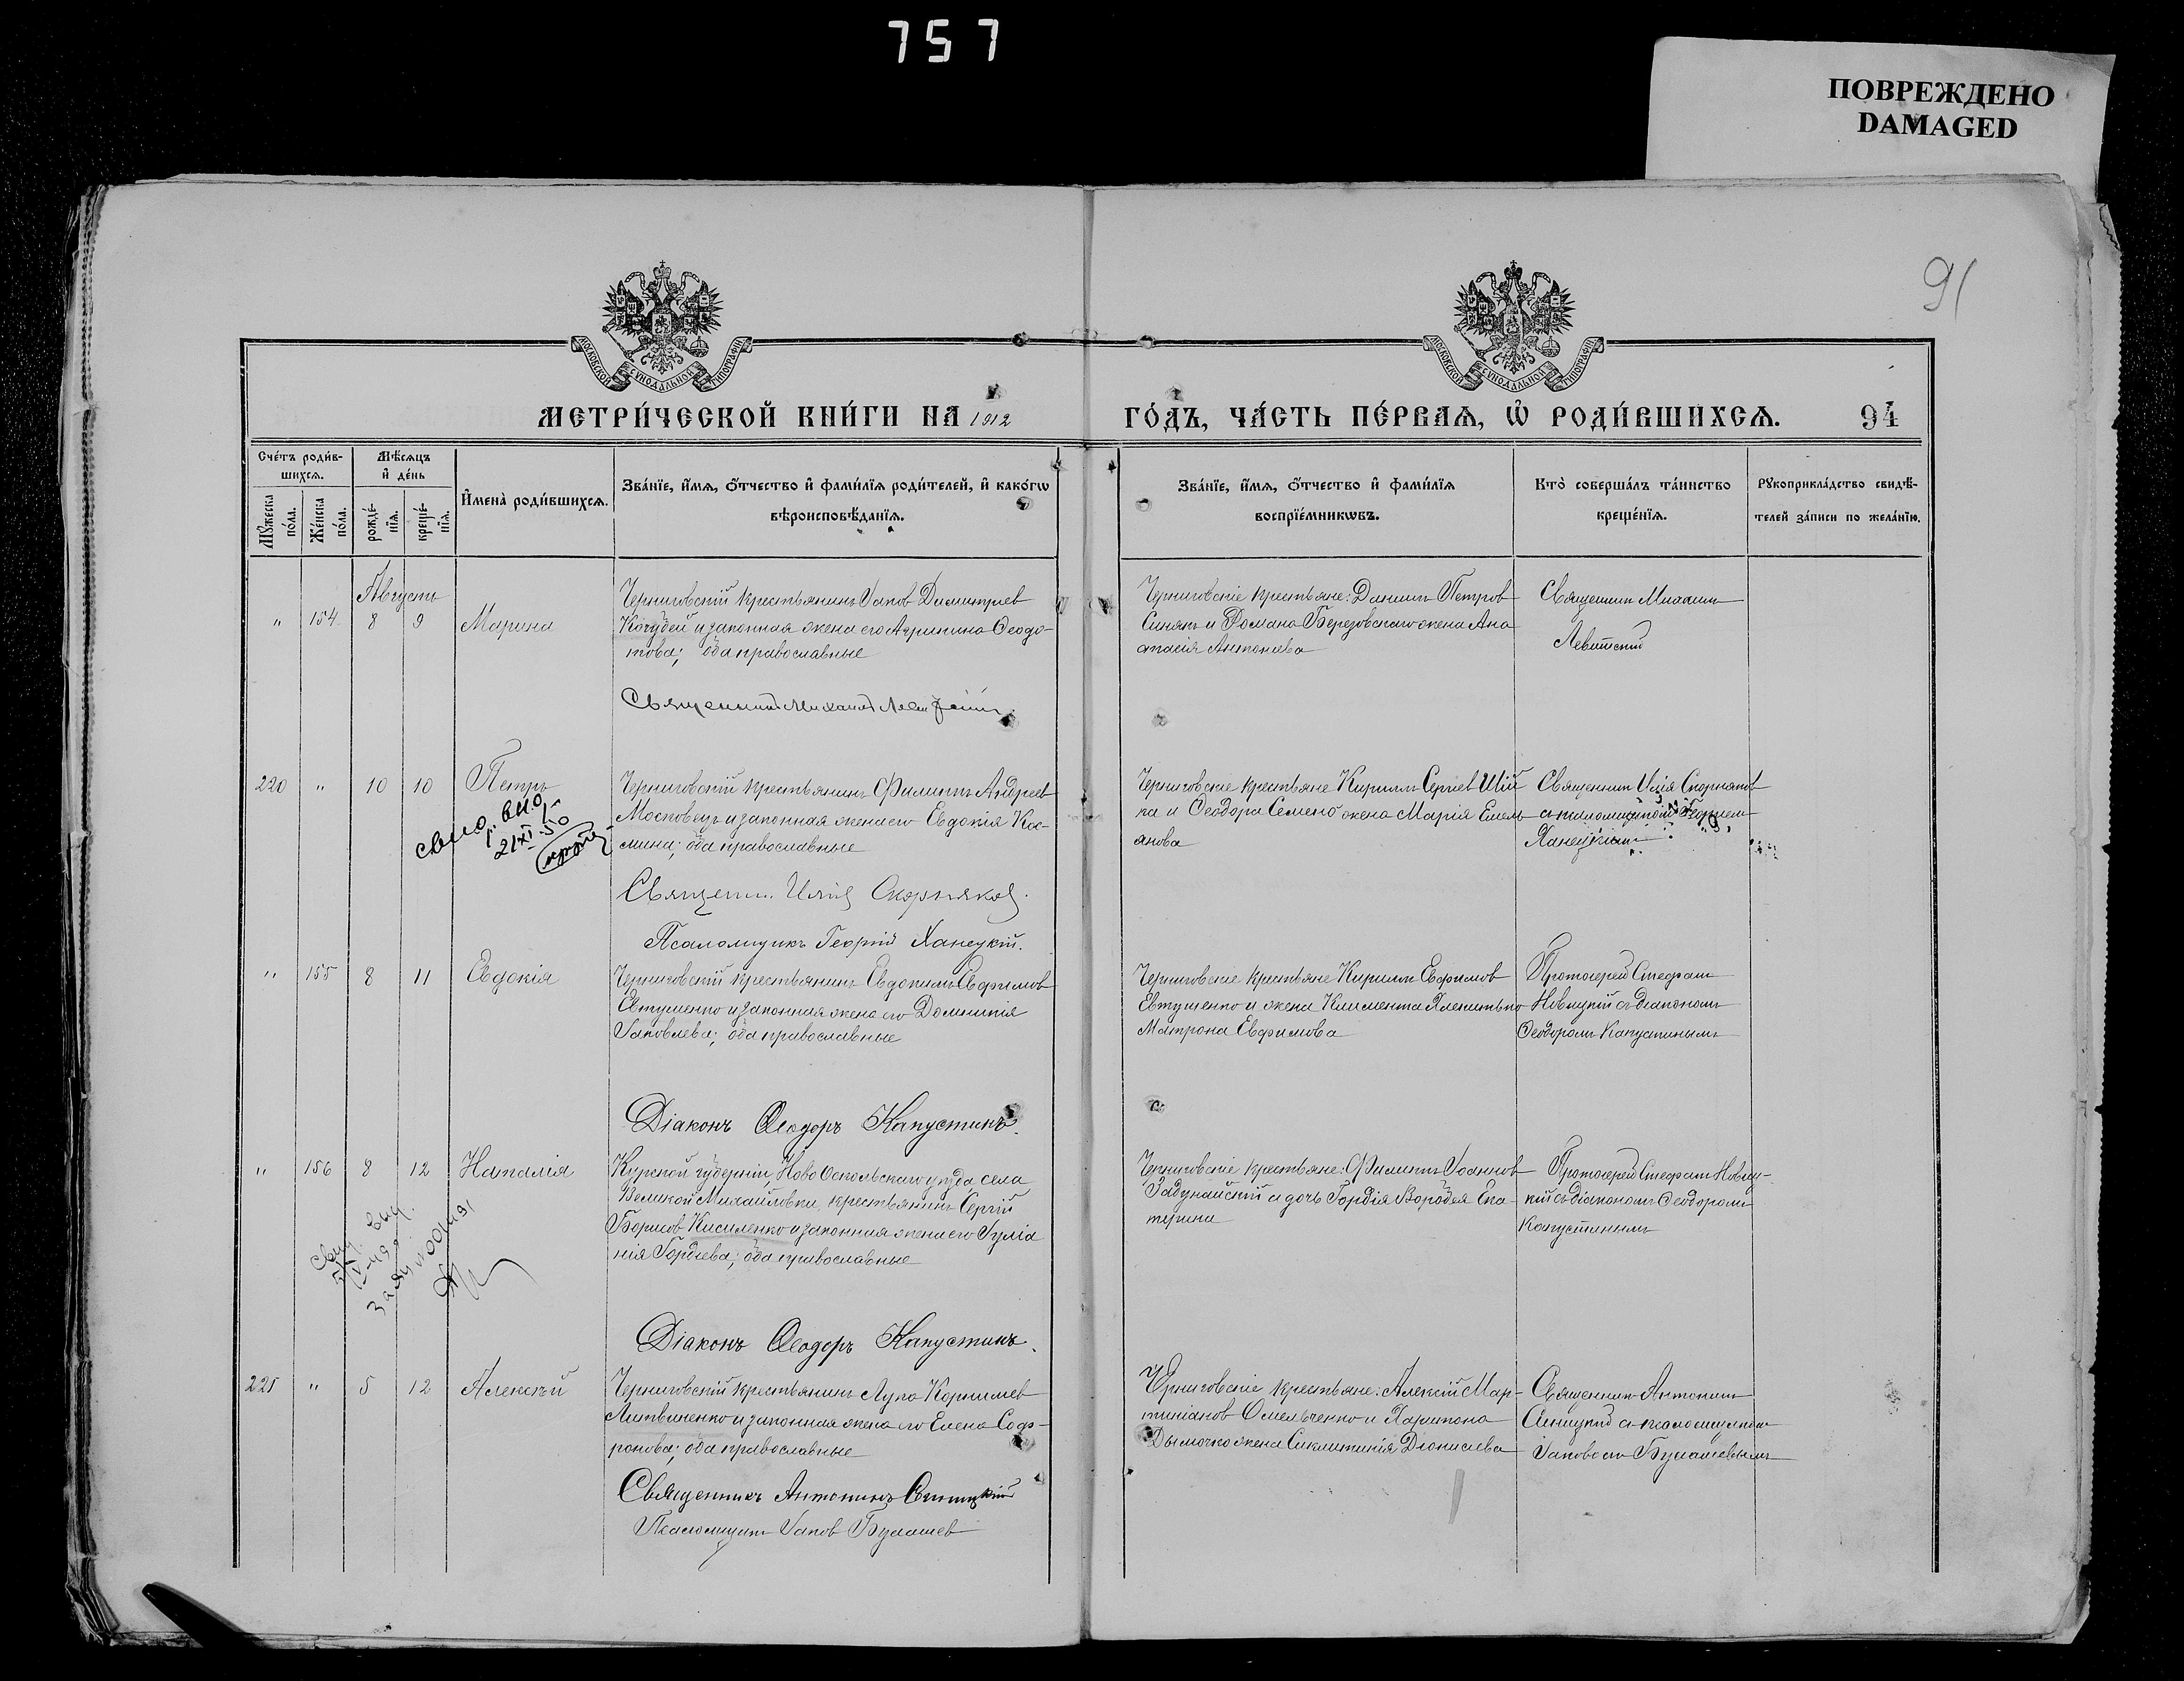 757
ПОВРЕЖДЕНО
DAMAGED
91
МОСКОВСКОЙ СѴНОДАЛЬНОЙ ТИПОГРАФІИ
МОСКОВСКОЙ СѴНОДАЛЬНОЙ ТИПОГРАФІИ
МЕТРИ́ЧЕСКОЙ КНИ́ГИ НА 1912
ГО́ДЪ, ЧА́СТЬ ПЕ́РВАѦ, Ѡ҆ РОДИ́ВШИХСѦ. 94
Сче́тъ роди́в-
шихсѧ.
Мꙋ́жеска по́ла.
Же́нска по́ла.
Мѣ́сѧцъ
и҆ де́нь
рожде́нїѧ.
креще́нїѧ.
И҆мена̀ роди́вшихсѧ.
Зва́нїе, и҆́мѧ, ѻ҆́тчество и҆ фами́лїѧ роди́телей, и҆ како́гѡ
вѣроисповѣ́данїѧ.
Зва́нїе, и҆́мѧ, ѻ҆́тчество и҆ фами́лїѧ
воспрїе́мникѡвъ.
Кто̀ соверша́лъ та́инство
креще́нїѧ.
Рꙋкоприкла́дство свидѣ́-
телей за́писи по жела́нїю.
Августъ
" 154 8 9 Марина
Черниговскій крестьянинъ Іаковъ Димитріев
Кочубей и законная жена его Агрипина Ѳеодо-
това; оба православные
Священникъ Михаилъ Левитскій.
Черниговскіе крестьяне: Даниилъ Петров
Синякъ и Романа Березовскаго жена Ана
стасія Антоніева
Священникъ Михаилъ
Левитскій
220 " 10 10 Петръ
21 XI-50
Черниговскій крестьянинъ Филиппъ Андреев
Московецъ и законная жена его Евдокія Кос-
мина; оба православные
Священ. Илія Скорняков.
Псаломщикъ Георгій Ханецкій.
Черниговскіе крестьяне Кириллъ Сергіев Шій
ка и Ѳеодора Семено жена Марія Емель
янова
Священникъ Илія Скорняков
с псаломщикомъ Георгіем
Ханецкимъ
" 155 8 11 Евдокія
Черниговскій крестьянинъ Евдокимъ Евфимов
Евтушенко и законная жена его Домникія
Іаковлева; оба православные
Діаконъ Ѳеодоръ Капустинъ.
Черниговскіе крестьяне Кириллъ Евфимов
Евтушенко и жена Климента
Матрона Евфимова
Протоіерей Стефанъ
Новицкій съ діакономъ
Ѳеодоромъ Капустинымъ
" 156 8 12 Наталія
Курской губерніи, Ново Оскольскаго уѣзда, села
Великой Михайловки, крестьянинъ Сергій
Борисов Кисиленко и законная жена его Іуліа
нія Гордіева; оба православные
Діаконъ Ѳеодоръ Капустинъ.
Черниговскіе крестьяне: Филиппъ Іоаннов
Задунайскій и дочь Гордія Воробея Ека-
терина
Протоіерей Стефанъ Новиц-
кій съ діакономъ Ѳеодоромъ
Капустинымъ
221 " 5 12 Алексѣй
Черниговскій крестьянинъ Лука Корнилев
Литвиненко и законная жена его Елена Соф-
ронова; оба православные
Священникъ Антонинъ Синицкій
Псаломщикъ Іаков Булашев
Черниговскіе крестьяне: Алексій Мар-
тиніанов Омельченко и Харитона
Дымочко жена Синклитикія Діонисіева
Священникъ Антонинъ
Синицкій с псаломщикомъ
Іаковомъ Булашевымъ